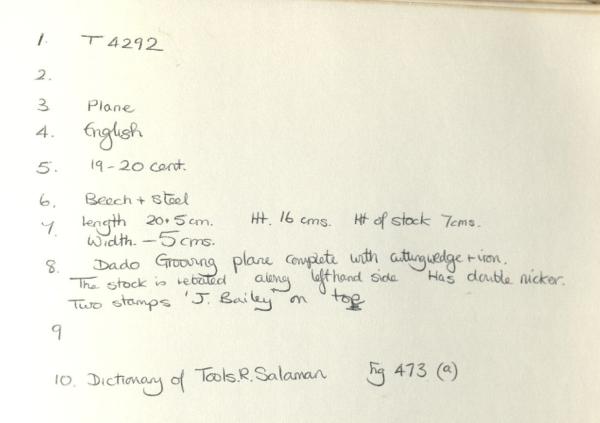 1. T 4292
2.
3 Plane
4. English
5. 19-20 cent.
6. Beech + steel
7. Length 20.5cm. Ht. 16 cms. Ht of stock 7cms.
Width. - 5 cms.
8. Dado Grooving plane complete with cutting wedge + iron.
The stock is rebated along lefthand side Has double nicker.
Two stamps 'J. Bailey' on top
9
10. Dictionary of Tools. R. Salaman Fig 473 (a)